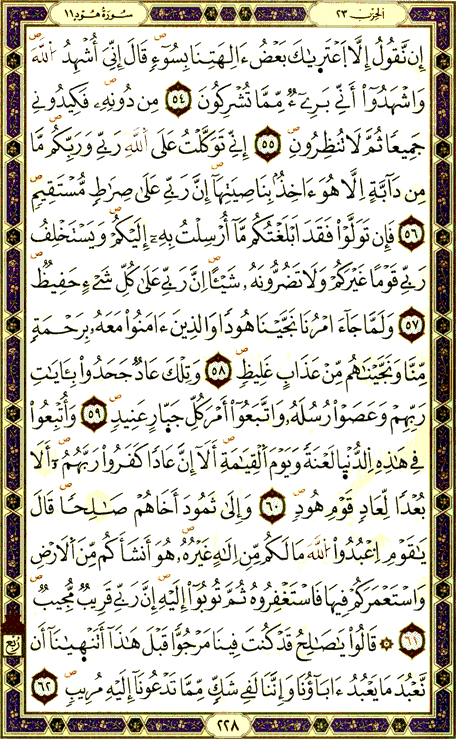 الحِزب ٢٣
سُورَةُ هُود ١١
إِن نَّقُولُ إِلَّا اَعْتَرَيٰكَ بَعْضُ ءَالِهَتِنَا بِسُوٓءٍ قَالَ إِنِّىٓ أُشْهِدُ اللَّهَ
وَاشْهَدُوٓاْ أَنِّى بَرِىٓءٌ مِّمَّا تُشْرِكُونَ ٥٤ مِن دُونِهِۦ فَكِيدُونِى
جَمِيعًا ثُمَّ لَا تُنظِرُونِ ٥٥ إِنِّى تَوَكَّلْتُ عَلَى اللَّهِ رَبِّى وَرَبِّكُم مَّا
مِن دَآبَّةٍ إِلَّا هُوَ ءَاخِذٌۢ بِنَاصِيَتِهَآ إِنَّ رَبِّى عَلَىٰ صِرَاطٍ مُّسْتَقِيمٍ
٥٦ فَإِن تَوَلَّوْاْ فَقَدْ أَبْلَغْتُكُم مَّآ أُرْسِلْتُ بِهِۦٓ إِلَيْكُمْ وَيَسْتَخْلِفُ
رَبِّى قَوْمًا غَيْرَكُمْ وَلَا تَضُرُّونَهُۥ شَيْـًٔا إِنَّ رَبِّى عَلَىٰ كُلِّ شَىْءٍ حَفِيظٌ
٥٧ وَلَمَّا جَآءَ امْرُنَا نَجَّيْنَا هُودًا وَالَّذِينَ ءَامَنُواْ مَعَهُۥ بِرَحْمَةٍ
مِّنَّا وَنَجَّيْنَٰهُم مِّنْ عَذَابٍ غَلِيظٍ ٥٨ وَتِلْكَ عَادٌ جَحَدُواْ بِـَٔايَٰتِ
رَبِّهِمْ وَعَصَوْاْ رُسُلَهُۥ وَاتَّبَعُوٓاْ أَمْرَ كُلِّ جَبَّارٍ عَنِيدٍ ٥٩ وَأُتْبِعُواْ
فِى هَٰذِهِ اِلدُّنْيَا لَعْنَةً وَيَوْمَ اَلْقِيَٰمَةِ أَلَآ إِنَّ عَادًا كَفَرُواْ رَبَّهُمُۥٓ أَلَا
بُعْدًا لِّعَادٍ قَوْمِ هُودٍ ٦٠ وَإِلَىٰ ثَمُودَ أَخَاهُمْ صَٰلِحًا قَالَ
يَٰقَوْمِ اِعْبُدُواْ اللَّهَ مَا لَكُم مِّنِ اِلَٰهٍ غَيْرُهُۥ هُوَ أَنشَأَكُم مِّنَ اَلَارْضِ
وَاسْتَعْمَرَكُمْ فِيهَا فَاسْتَغْفِرُوهُ ثُمَّ تُوبُوٓاْ إِلَيْهِ إِنَّ رَبِّى قَرِيبٌ مُّجِيبٌ
٦١ ۞ قَالُواْ يَٰصَٰلِحُ قَدْ كُنتَ فِينَا مَرْجُوًّا قَبْلَ هَٰذَآ أَتَنْهَيٰنَآ أَن
نَّعْبُدَ مَا يَعْبُدُ ءَابَآؤُنَا وَإِنَّنَا لَفِى شَكٍّ مِّمَّا تَدْعُونَآ إِلَيْهِ مُرِيبٍ ٦٢
ربع
٢٢٨